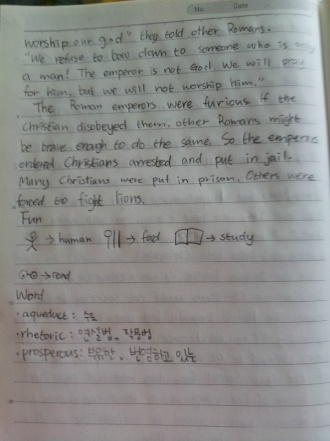 No. Date
worship our god" they told other Romans.
"We refuse to bow down to someone who is only
a man! The emperor is not God. We will pray
for him, but we will not worship him."
The Roman emperors were furious if the
Christian disobeyed them, other Romans might
be brave enough to do the same. So the emperor
ordered Christians arrested and put in jail.
Many Christians were put in prison. Others were
forced to fight lions.
Fun
→ human → food → study
→ read
Word
• aqueduct : 수로
• rhetoric : 연설법, 작용법
• prosperous : 부유한, 번영하고 있는